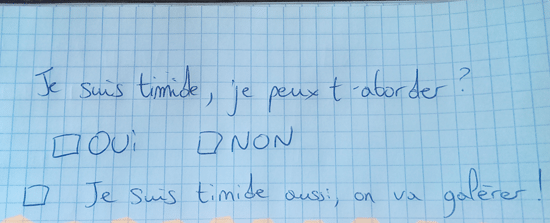 Je suis timide, je peux t-aborder ?
☐ OUi ☐ NON
☐ Je suis timide aussi, on va galérer !